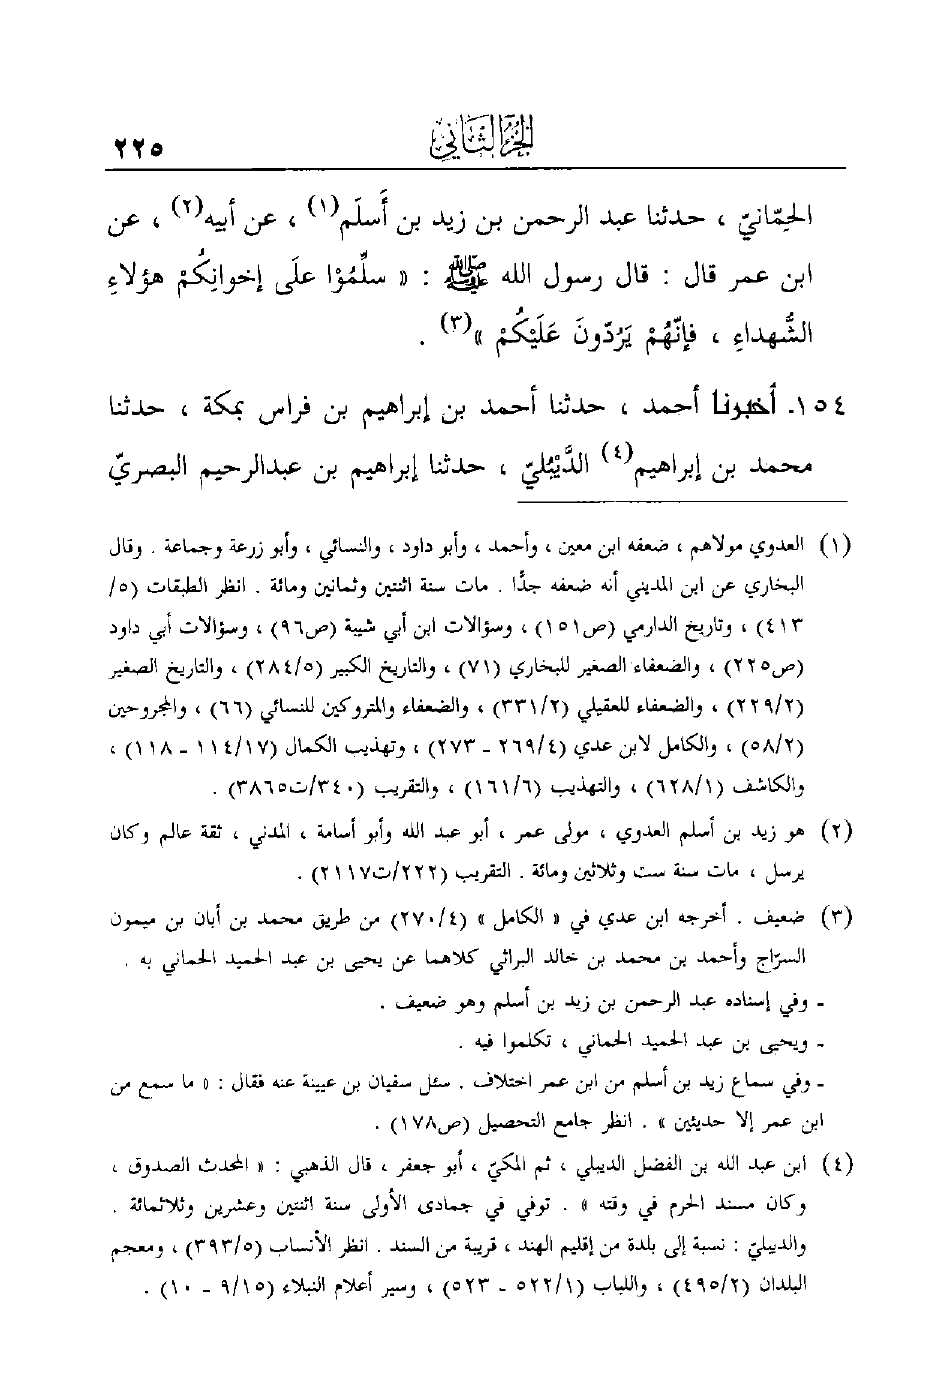 الجزء الثاني
٢٢٥
الحِمّانيّ ، حدثنا عبد الرحمن بن زيد بن أَسلَم(١) ، عن أبيه(٢) ، عن
ابن عمر قال : قال رسول الله ﷺ : « سلِّمُوْا علَى إخوانِكُمْ هؤلاءِ
الشُّهداءِ ، فإنّهُمْ يَرُدّونَ عَلَيْكُمْ »(٣) .
١٥٤. أخبرنا أحمد ، حدثنا أحمد بن إبراهيم بن فراس بمكة ، حدثنا
محمد بن إبراهيم(٤) الدَّيْبُليّ ، حدثنا إبراهيم بن عبدالرحيم البصريّ
(١) العدوي مولاهم ، ضعفه ابن معين ، وأحمد ، وأبو داود ، والنسائي ، وأبو زرعة وجماعة . وقال
البخاري عن ابن المديني أنه ضعفه جدًّا . مات سنة اثنتين وثمانين ومائة . انظر الطبقات (٥/
٤١٣) ، وتاريخ الدارمي (ص١٥١) ، وسؤالات ابن أبي شيبة (ص٩٦) ، وسؤالات أبي داود
(ص٢٢٥) ، والضعفاء الصغير للبخاري (٧١) ، والتاريخ الكبير (٢٨٤/٥) ، والتاريخ الصغير
(٢٢٩/٢) ، والضعفاء للعقيلي (٣٣١/٢) ، والضعفاء والمتروكين للنسائي (٦٦) ، والمجروحين
(٥٨/٢) ، والكامل لابن عدي (٢٦٩/٤ - ٢٧٣) ، وتهذيب الكمال (١١٤/١٧ - ١١٨) ،
والكاشف (٦٢٨/١) ، والتهذيب (١٦١/٦) ، والتقريب (٣٤٠/ت٣٨٦٥) .
(٢) هو زيد بن أسلم العدوي ، مولى عمر ، أبو عبد الله وأبو أسامة ، المدني ، ثقة عالم وكان
يرسل ، مات سنة ست وثلاثين ومائة . التقريب (٢٢٢/ت٢١١٧) .
(٣) ضعيف . أخرجه ابن عدي في « الكامل » (٢٧٠/٤) من طريق محمد بن أبان بن ميمون
السرّاج وأحمد بن محمد بن خالد البراثي كلاهما عن يحيى بن عبد الحميد الحماني به .
- وفي إسناده عبد الرحمن بن زيد بن أسلم وهو ضعيف .
- ويحيى بن عبد الحميد الحماني ، تكلموا فيه .
- وفي سماع زيد بن أسلم من ابن عمر اختلاف . سئل سفيان بن عيينة عنه فقال : « ما سمع من
ابن عمر إلا حديثين » . انظر جامع التحصيل (ص١٧٨) .
(٤) ابن عبد الله بن الفضل الديبلي ، ثم المكيّ ، أبو جعفر ، قال الذهبي : « المحدث الصدوق ،
وكان مسند الحرم في وقته » . توفي في جمادى الأولى سنة اثنتين وعشرين وثلاثمائة .
والديبليّ : نسبة إلى بلدة من إقليم الهند ، قريبة من السند . انظر الأنساب (٣٩٣/٥) ، ومعجم
البلدان (٤٩٥/٢) ، واللباب (٥٢٢/١ - ٥٢٣) ، وسير أعلام النبلاء (٩/١٥ - ١٠) .